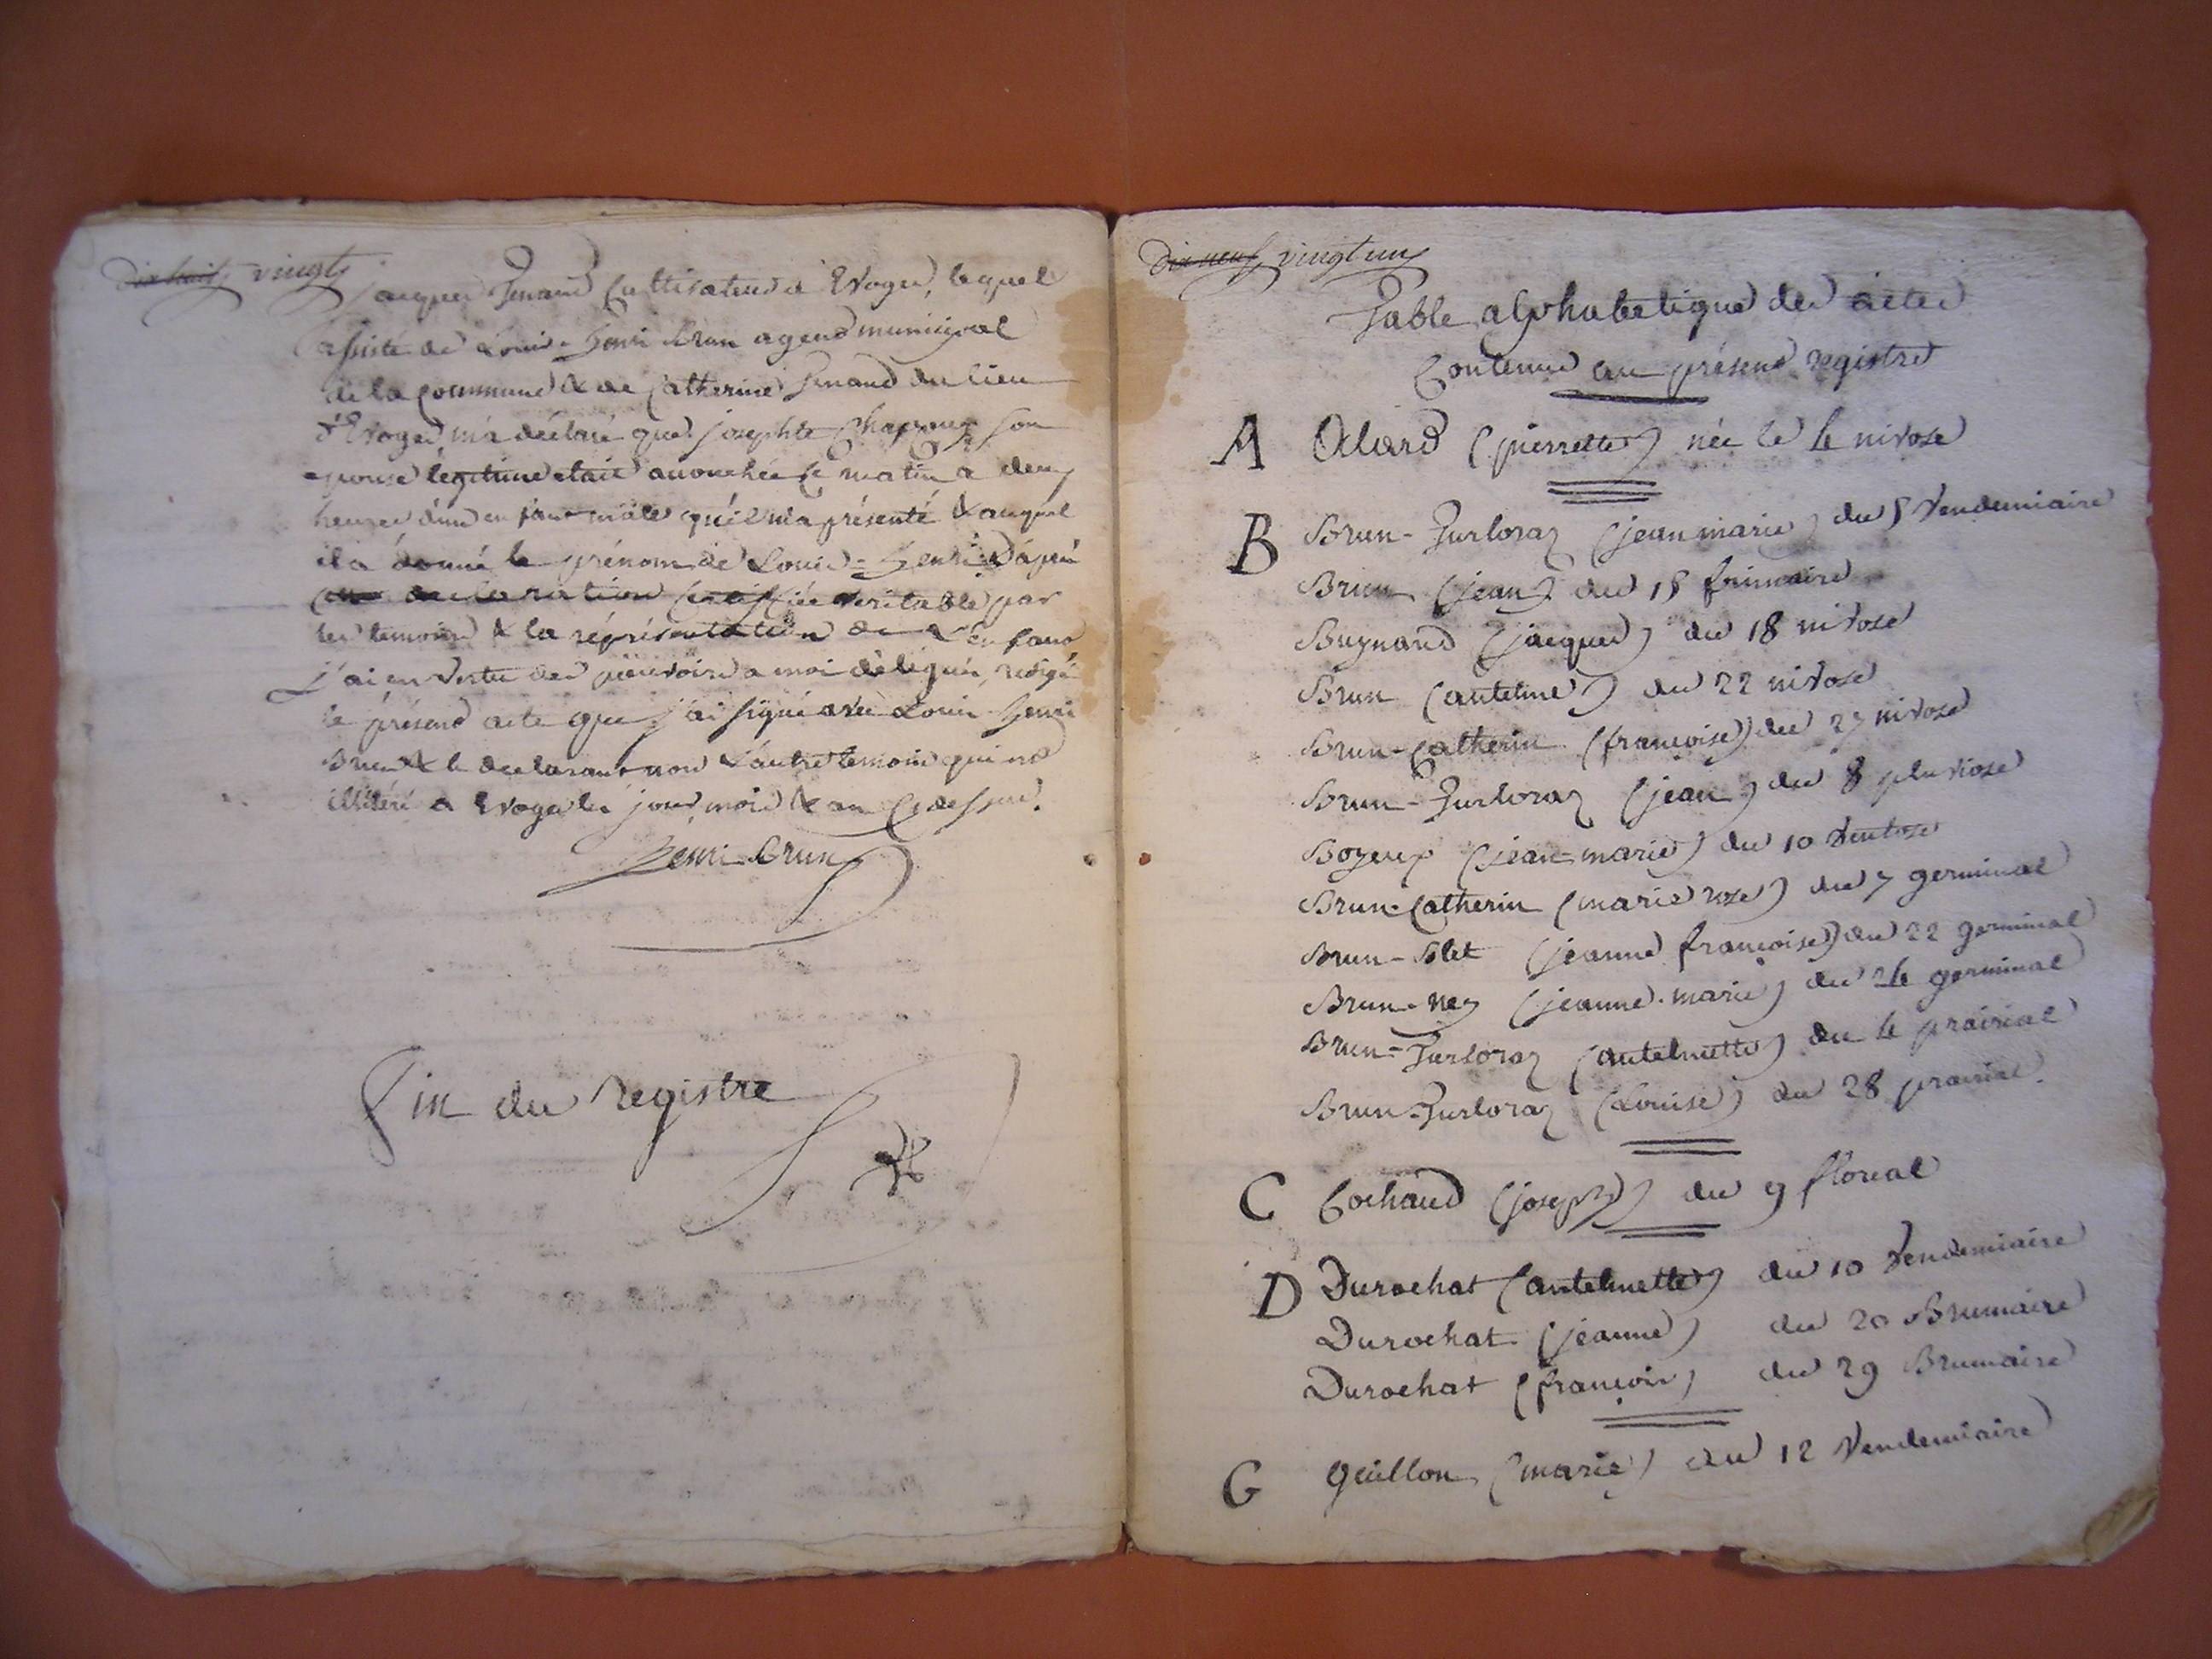 dix huit vingt
jacques Junand Cultivateur a Evoges, lequel
assisté de Louis-henri Brun agend municipal
de la Commune & de Catherine Junand du lieu
d'Evoges m'a déclaré que josephte son
epouse légitime etait acouchée ce matin a deux
heures d'un enfant mâle qu'il m'a présenté & auquel
il a donné le prénom de Louis-henri. D'apres
declaration certiffiée veritable par
les temoins & la réprésentation de L'enfant
j'ai en vertu des pouvoirs a moi délégués, redigé
le présend acte que j'ai signé avec Louis henri
Brun & le declarant non L'autre temoin qui est
illitéré a Evoges les jour, mois & an Cydessus.
henri Brun
Fin du registre
dix neuf vingt un
Table alphabetique des actes
Contenus au présend registre
A Alard (pierrette) née le 4 nivose
B Brun-Zurloraz (jean marie) du 5 Vendemiaire
Brun (jean) du 15 frimaire
Bugnand (jacques) du 18 nivose
Brun (antelme) du 22 nivose
Brun-Catherin (francoise) du 27 nivose
Brun-Zurloraz (jean) du 8 pluviose
Bozeux (jean-marie) du 10 Ventose
Brun-Catherin (marie rose) du 7 germinal
Brun-Blet (jeanne francoise) du 22 germinal
Brun-ney (jeanne-marie) du 24 germinal
Brun-Zurloraz (antelmette) du 4 prairial
Brun-Zurloraz (Louise) du 28 prairial.
C Cochaud (joseph) du 9 floreal
D Durochat (antelmette) du 10 Vendemiaire
Durochat (jeanne) du 20 Brumaire
Durochat (francois) du 29 Brumaire
G Guillon (marie) du 12 Vendemiaire